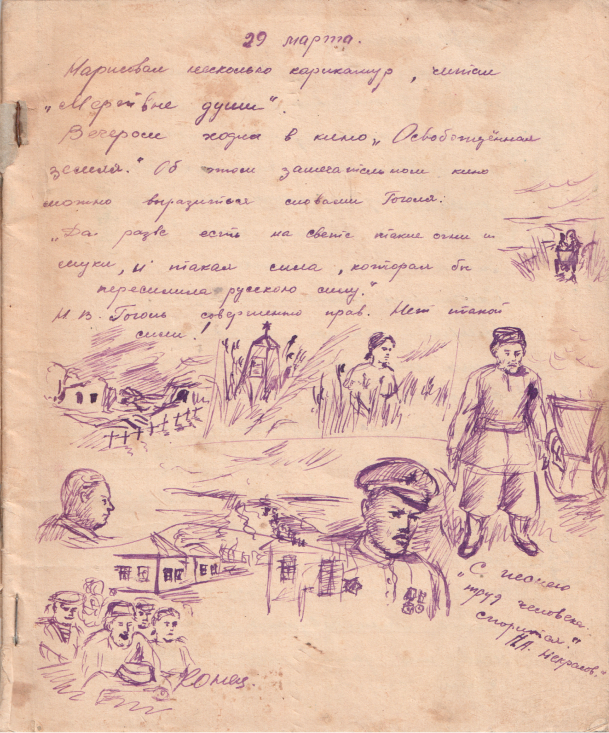 29 марта.
Нарисовал несколько карикатур, читал
„Мертвые души“.
Вечером ходил в кино „Освобождённая
земля.“ Об этом замечательном кино
можно выразиться словами Гоголя:
„Да разве есть на свете такие огни и
муки, и такая сила, которая бы
пересилила русскою силу.“
Н В. Гоголь совершенно прав. Нет такой
силы!
„С песнею
труд человека
спорится.“
Н.А. Некрасов.“
Конец.